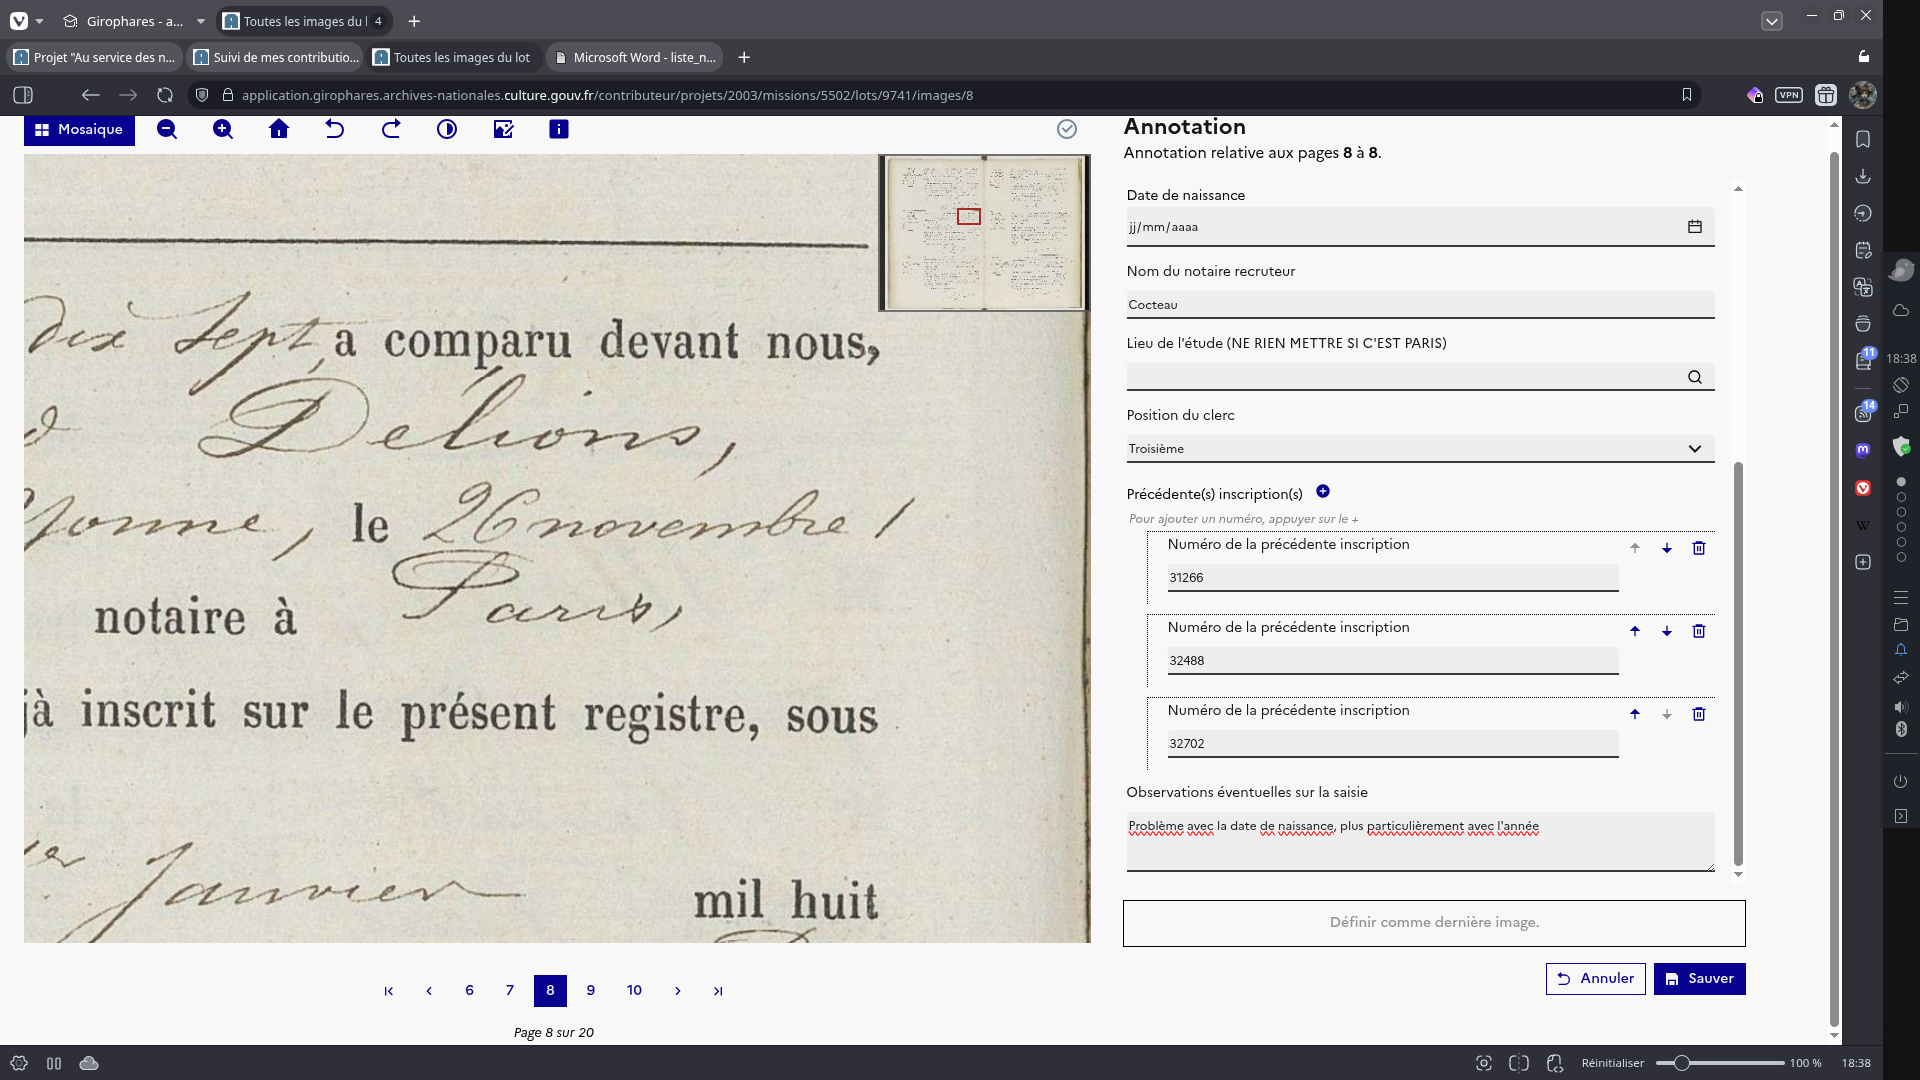 Girophares - a...
Toutes les images du l 4
Projet "Au service des n...
Suivi de mes contributio...
Toutes les images du lot
Microsoft Word - liste_n...
application.girophares.archives-nationales.culture.gouv.fr/contributeur/projets/2003/missions/5502/lots/9741/images/8
VPN
Mosaique
dix sept, a comparu devant nous,
Delions,
Yonne, le 26 novembre 1
notaire à Paris,
jà inscrit sur le présent registre, sous
er Janvier mil huit
6 7 8 9 10
Page 8 sur 20
Annotation
Annotation relative aux pages 8 à 8.
Date de naissance
jj/mm/aaaa
Nom du notaire recruteur
Cocteau
Lieu de l'étude (NE RIEN METTRE SI C'EST PARIS)
Position du clerc
Troisième
Précédente(s) inscription(s)
Pour ajouter un numéro, appuyer sur le +
Numéro de la précédente inscription
31266
Numéro de la précédente inscription
32488
Numéro de la précédente inscription
32702
Observations éventuelles sur la saisie
Problème avec la date de naissance, plus particulièrement avec l'année
Définir comme dernière image.
Annuler
Sauver
11
14
W
18:38
Réinitialiser
100 %
18:38